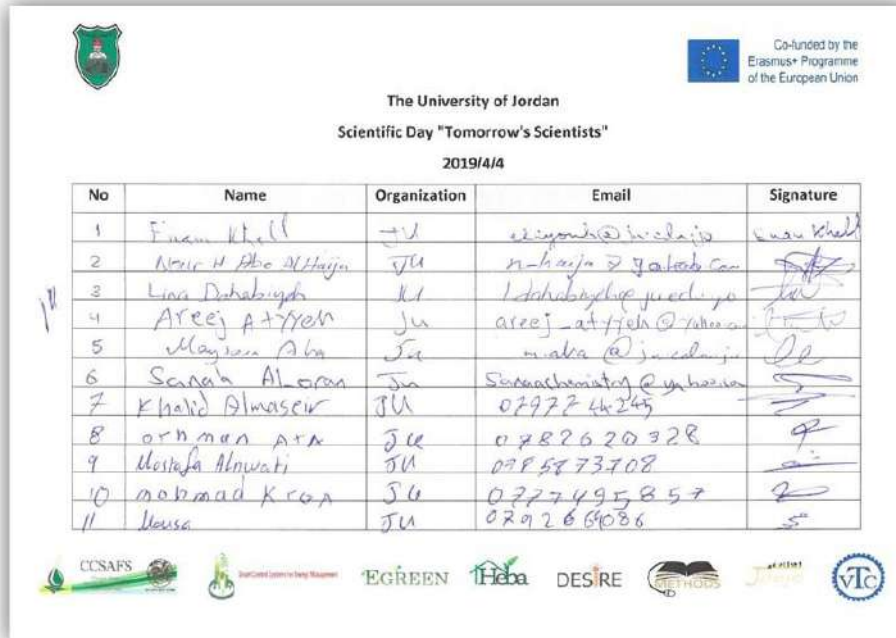 Co-funded by the
Erasmus+ Programme
of the European Union
The University of Jordan
Scientific Day "Tomorrow's Scientists"
2019/4/4
No Name Organization Email Signature
1 Khell JU Khell
2 H Abo Al Haija JU n-haija
3 Lina Dahabiyeh JU
4 Areej Atyyeh Ju areej_atyyeh@yahoo
5 Aba Ju
6 Sana'a Al-oran Ju Sanaachemistry@yahoo.com
7 Khalid Almaseir JU
8 othman Ata JU 0782620328
9 Mostafa Alnwati JU 0785873708
10 mohmad Kron JU 0777495857
11 Mousa JU 0792664086
CCSAFS Smart Control Systems for Energy Management EGREEN Heba DESIRE METHODS VTC